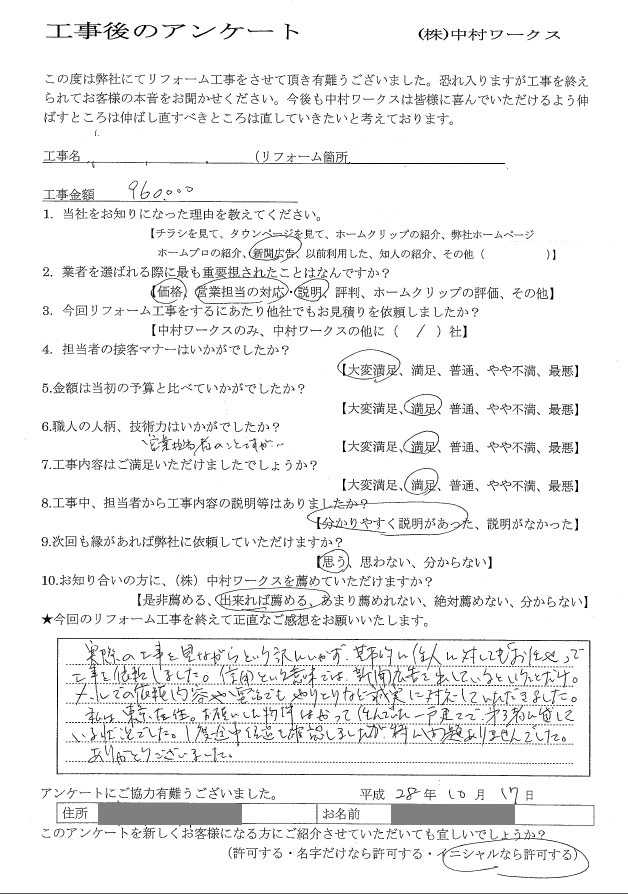 工事後のアンケート　(株)中村ワークス
この度は弊社にてリフォーム工事をさせて頂き有難うございました。恐れ入りますが工事を終え
られてお客様の本音をお聞かせください。今後も中村ワークスは皆様に喜んでいただけるよう伸
ばすところは伸ばし直すべきところは直していきたいと考えております。
工事名　（リフォーム箇所
工事金額　960,000
1. 当社をお知りになった理由を教えてください。
【チラシを見て、タウンページを見て、ホームクリップの紹介、弊社ホームページ
ホームプロの紹介、新聞広告、以前利用した、知人の紹介、その他（　　　）】
2. 業者を選ばれる際に最も重要担されたことはなんですか？
【価格、営業担当の対応・説明、評判、ホームクリップの評価、その他】
3. 今回リフォーム工事をするにあたり他社でもお見積りを依頼しましたか？
【中村ワークスのみ、中村ワークスの他に（ / ）社】
4. 担当者の接客マナーはいかがでしたか？
【大変満足、満足、普通、やや不満、最悪】
5.金額は当初の予算と比べていかがでしたか？
【大変満足、満足、普通、やや不満、最悪】
6.職人の人柄、技術力はいかがでしたか？
営業担当者のことですが…
【大変満足、満足、普通、やや不満、最悪】
7.工事内容はご満足いただけましたでしょうか？
【大変満足、満足、普通、やや不満、最悪】
8.工事中、担当者から工事内容の説明等はありましたか？
【分かりやすく説明があった、説明がなかった】
9.次回も縁があれば弊社に依頼していただけますか？
【思う、思わない、分からない】
10.お知り合いの方に、（株）中村ワークスを薦めていただけますか？
【是非薦める、出来れば薦める、あまり薦めれない、絶対薦めない、分からない】
★今回のリフォーム工事を終えて正直なご感想をお願いいたします。
実際の工事を見ながらという訳にいかず、基本的に住人に対しても
工事を依頼しました。信用という意味では、新聞広告を出しているということだけ。
メールでの依頼内容や電話でもやりとりなど誠実に対応していただきました。
私は、東京在住。お願いした物件はかつて住んでいた一戸建てで第3者に貸して
いる状況でした。1度途中経過を確認しましたが特に問題ありませんでした。
ありがとうございました。
アンケートにご協力有難うございました。　平成 28 年 10 月 17 日
住所　お名前
このアンケートを新しくお客様になる方にご紹介させていただいても宜しいでしょうか？
（許可する・名字だけなら許可する・イニシャルなら許可する）